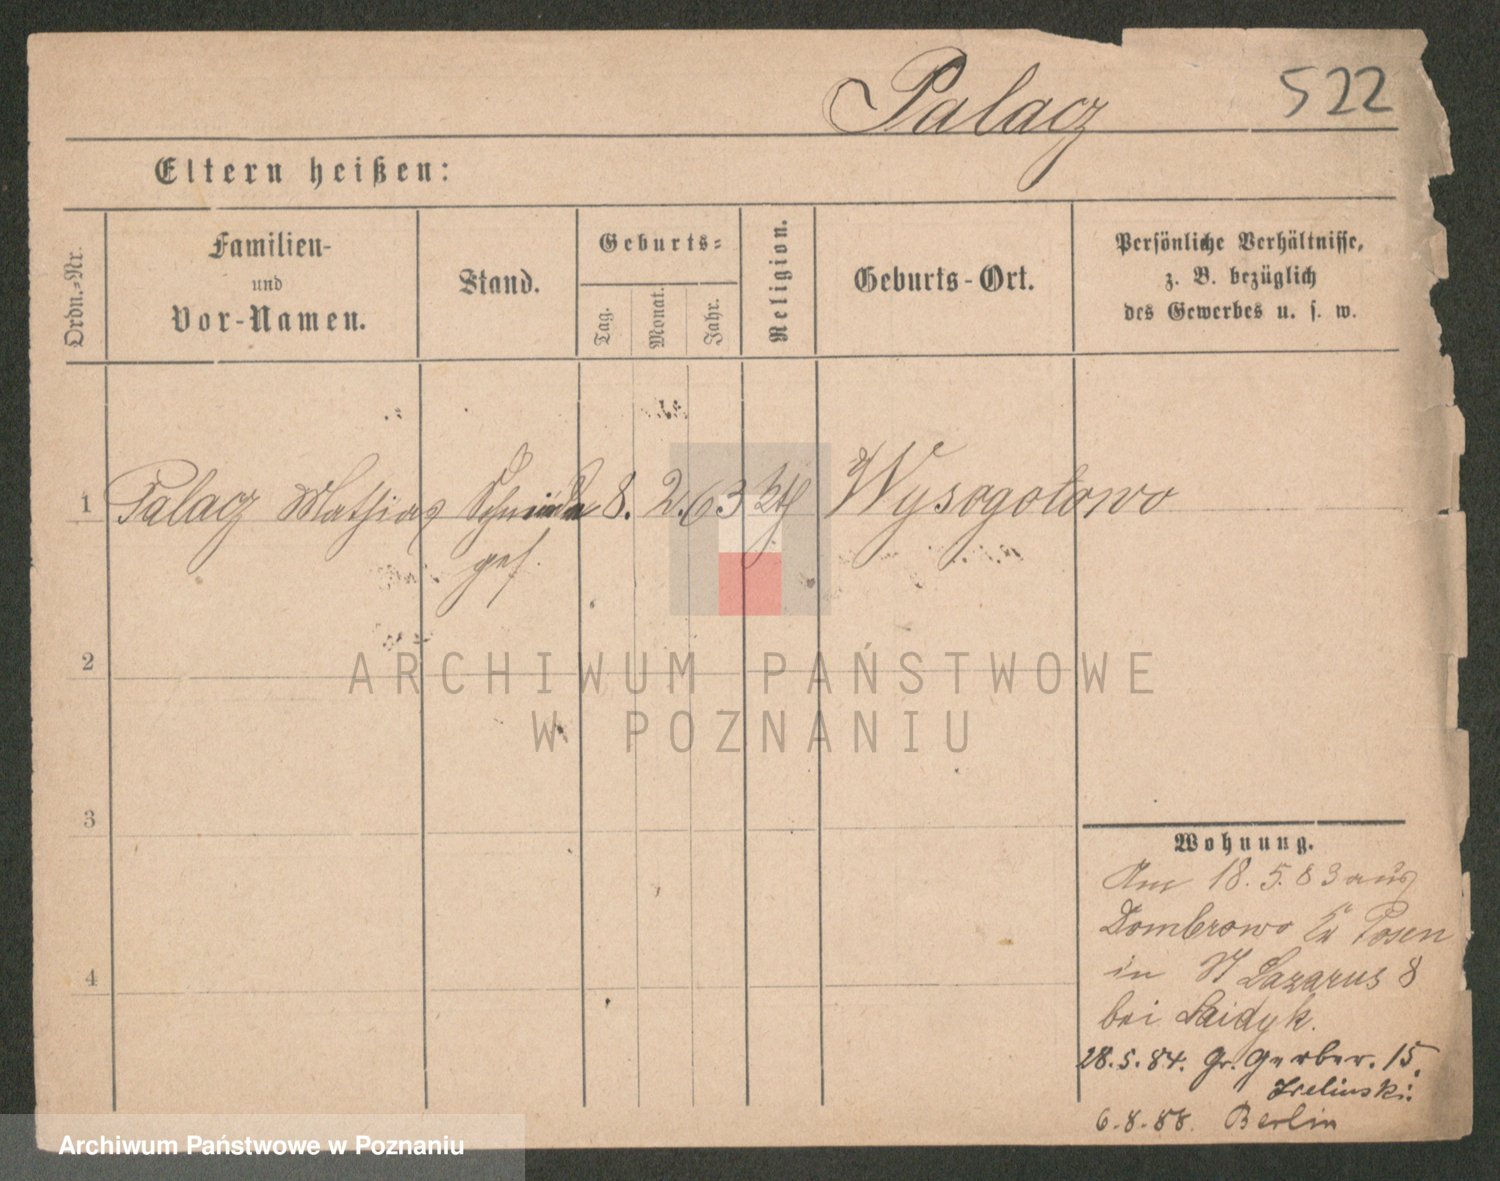 Palacz 522
Eltern heißen:
Ordn.-Nr.
Familien-
und
Vor-Namen.
Stand.
Geburts-
Tag.
Monat.
Jahr.
Religion.
Geburts-Ort.
Persönliche Verhältnisse,
z. B. bezüglich
des Gewerbes u. s. w.
1 Palacz Mathias Schneider 8. 2. 63 kth Wysogotowo
ges.
2
3
4
ARCHIWUM PAŃSTWOWE
W POZNANIU
Wohnung.
Am 18.5.83 aus
Dombrowo Posen
in St Lazarus 8
bei
28.5.84. Gr. Gerber. 15.
6.8.88. Berlin
Archiwum Państwowe w Poznaniu